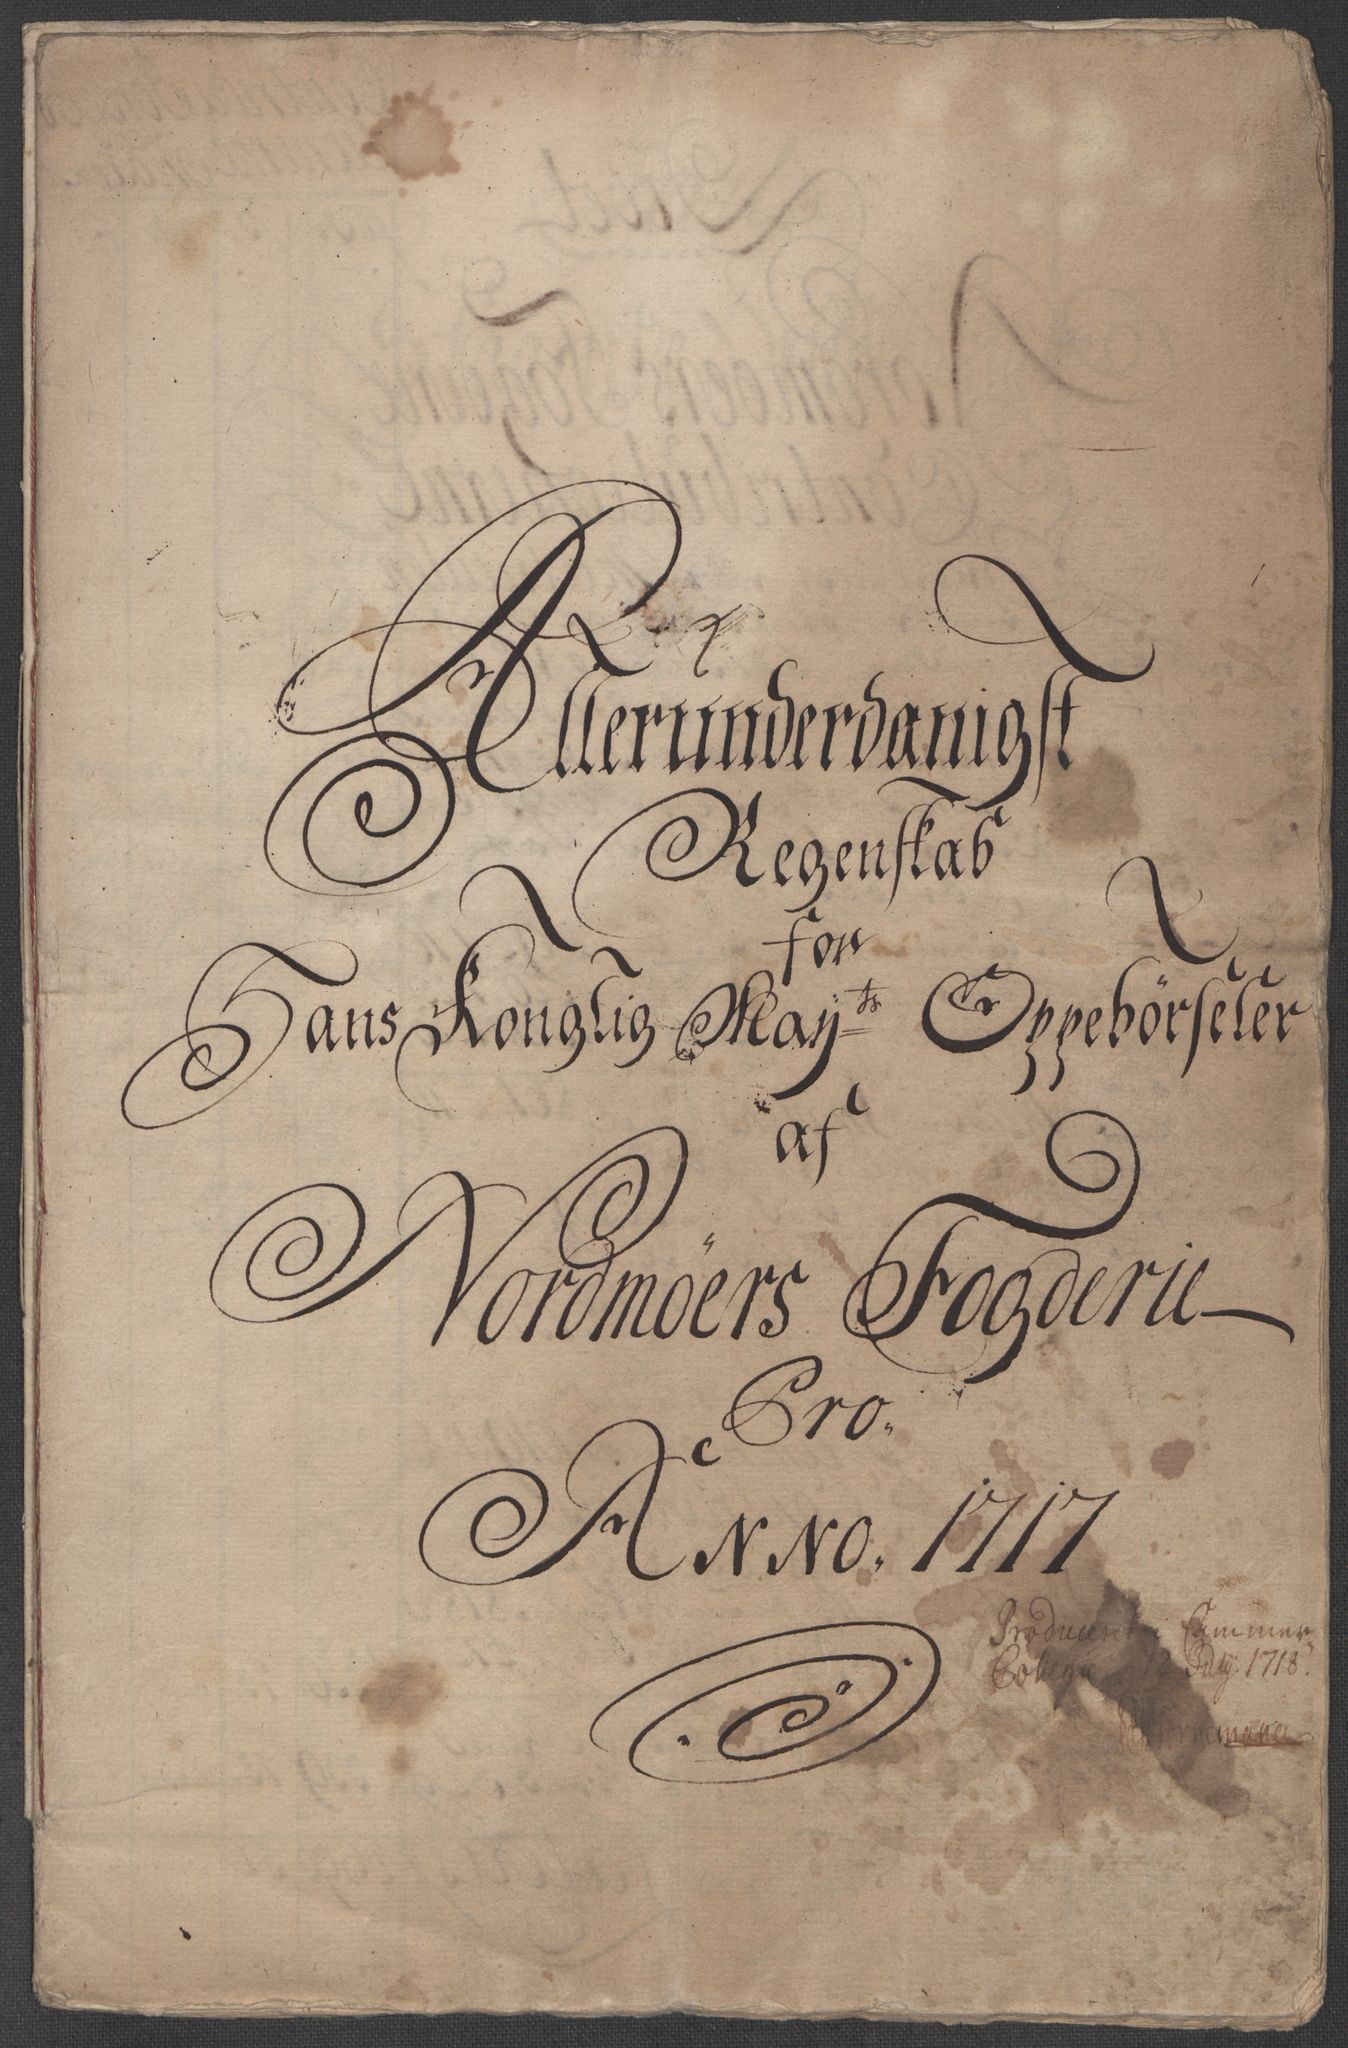 Allerunderdanigst
Regenskab
for
Hans Konglig Mayts Oppebörseler
af
Nordmöers Fogderie
Pro.
ANNO. 1717
Producent i Cammer
Collegio 12 July 1718.